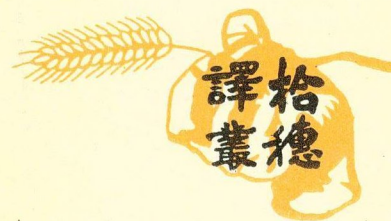 拾穗
譯叢